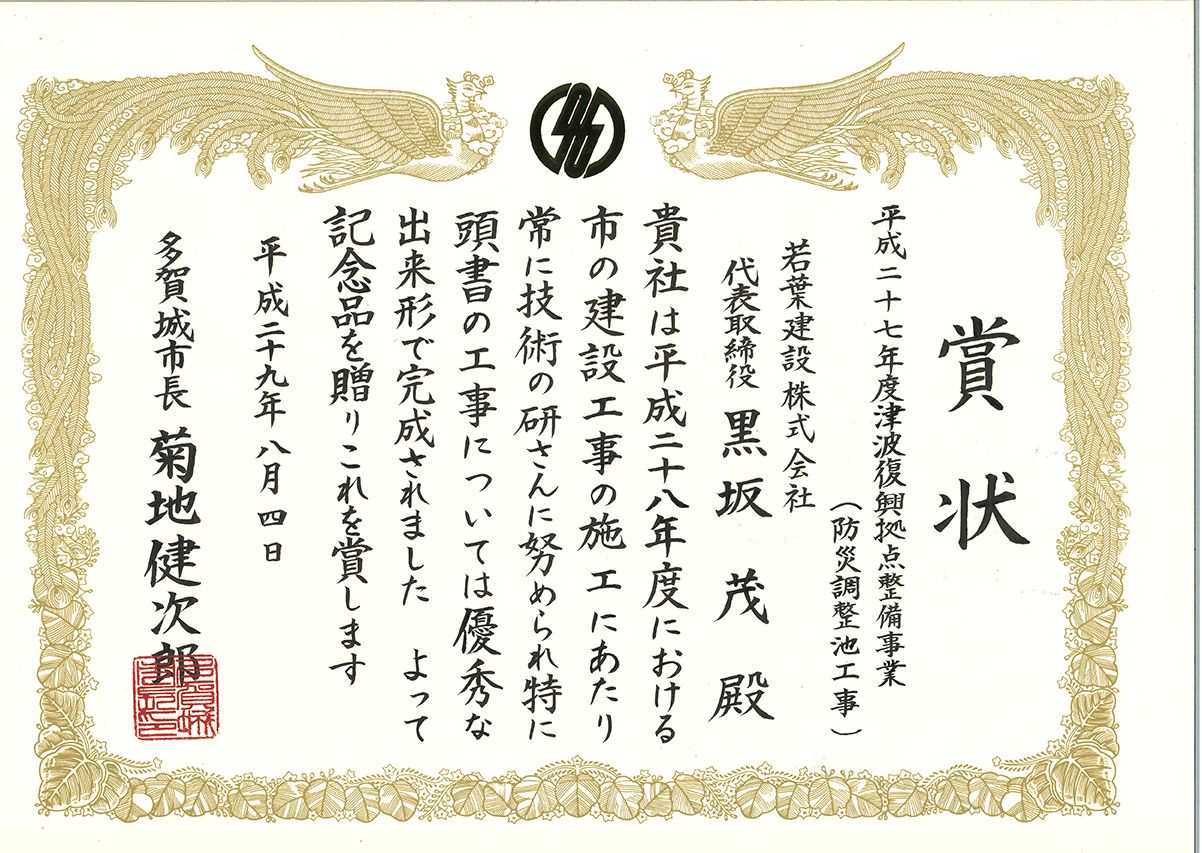 賞状
平成二十七年度津波復興拠点整備事業
(防災調整池工事)
若葉建設株式会社
代表取締役 黒坂 茂 殿
貴社は平成二十八年度における
市の建設工事の施工にあたり
常に技術の研さんに努められ特に
頭書の工事については優秀な
出来形で完成されました よって
記念品を贈りこれを賞します
平成二十九年八月四日
多賀城市長 菊地健次郎